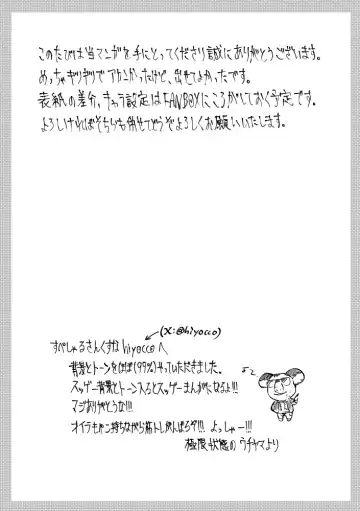 このたびは当マンガを手にとってくださり誠にありがとうございます。
めっちゃギリギリでアカンかったけど、出せてよかったです。
表紙の差分、キャラ設定はFANBOXにころがしておく予定です。
よろしければそちらも併せてどうぞよろしくお願いいたします。
(X:@hiyocco)
すぺしゃるさんくすな hiyoccoへ
背景とトーンをほぼ(99%)やっていただきました。
スッゲー背景とトーン入るとスッゲーまんがになるよ!!!
マジありがとうな!!!
オイラもペン持ちながら筋トレがんばるゾ!!! よっしゃー!!!
極限状態の ウチヤマより